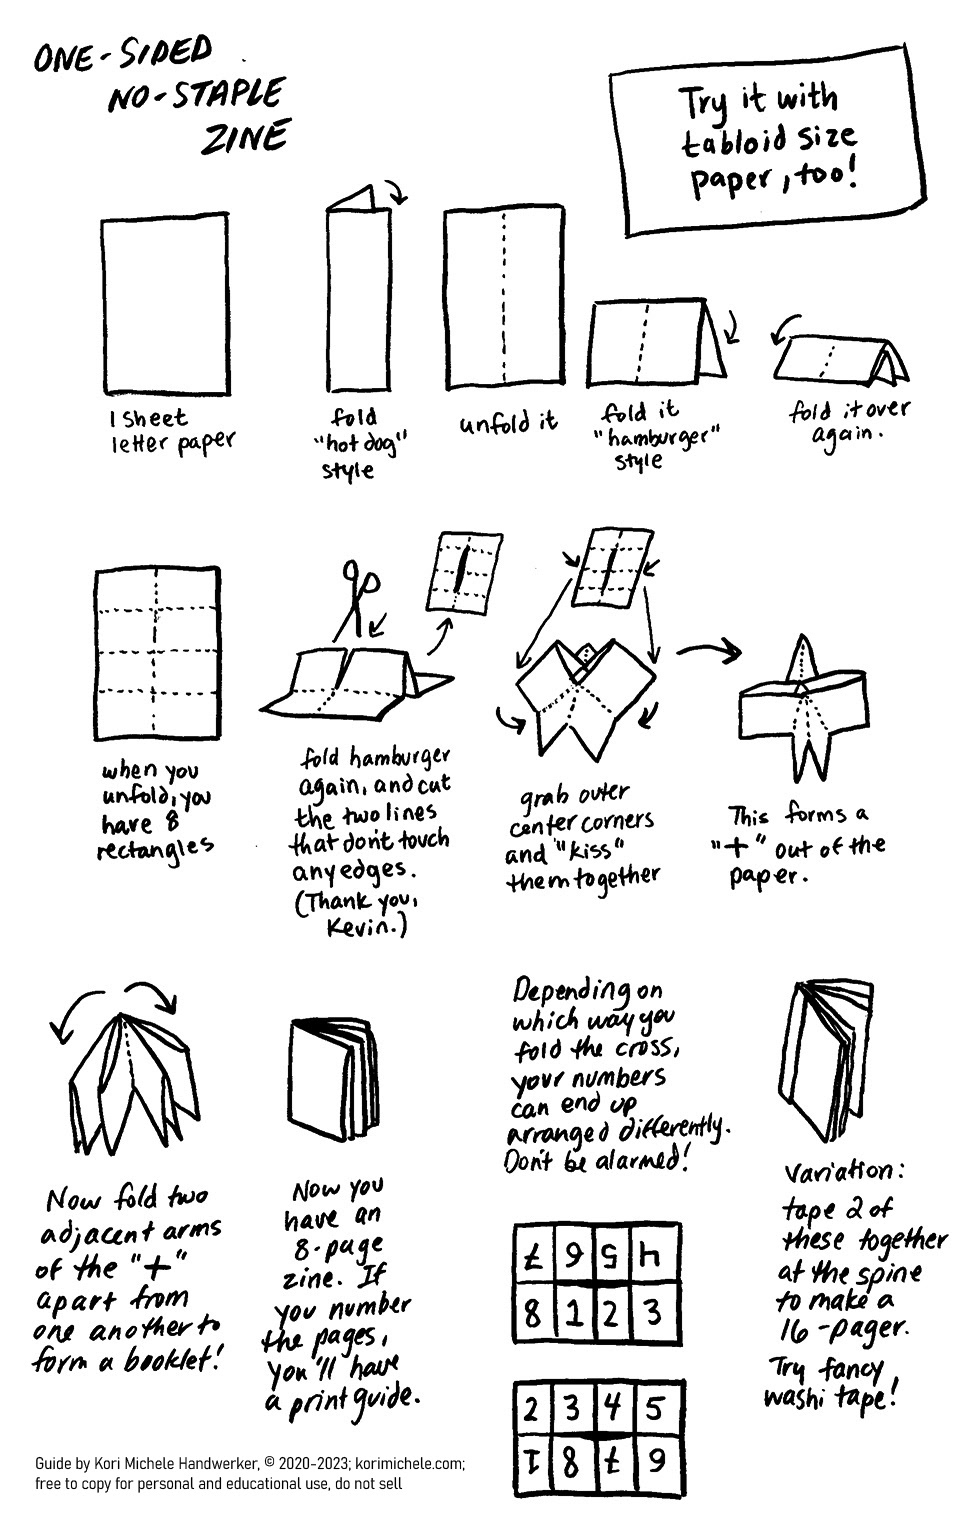 ONE-SIDED
NO-STAPLE
ZINE
Try it with
tabloid size
paper, too!
1 sheet
letter paper
fold
"hot dog"
style
unfold it
fold it
"hamburger"
style
fold it over
again.
when you
unfold, you
have 8
rectangles
fold hamburger
again, and cut
the two lines
that don't touch
any edges.
(Thank you,
Kevin.)
grab outer
center corners
and "kiss"
them together
This forms a
"+" out of the
paper.
Now fold two
adjacent arms
of the "+"
apart from
one another to
form a booklet!
Now you
have an
8-page
zine. If
you number
the pages,
you'll have
a print guide.
Depending on
which way you
fold the cross,
your numbers
can end up
arranged differently.
Don't be alarmed!
7 6 5 4
8 1 2 3
2 3 4 5
1 8 7 6
Variation:
tape 2 of
these together
at the spine
to make a
16-pager.
Try fancy
washi tape!
Guide by Kori Michele Handwerker, © 2020-2023; korimichele.com;
free to copy for personal and educational use, do not sell